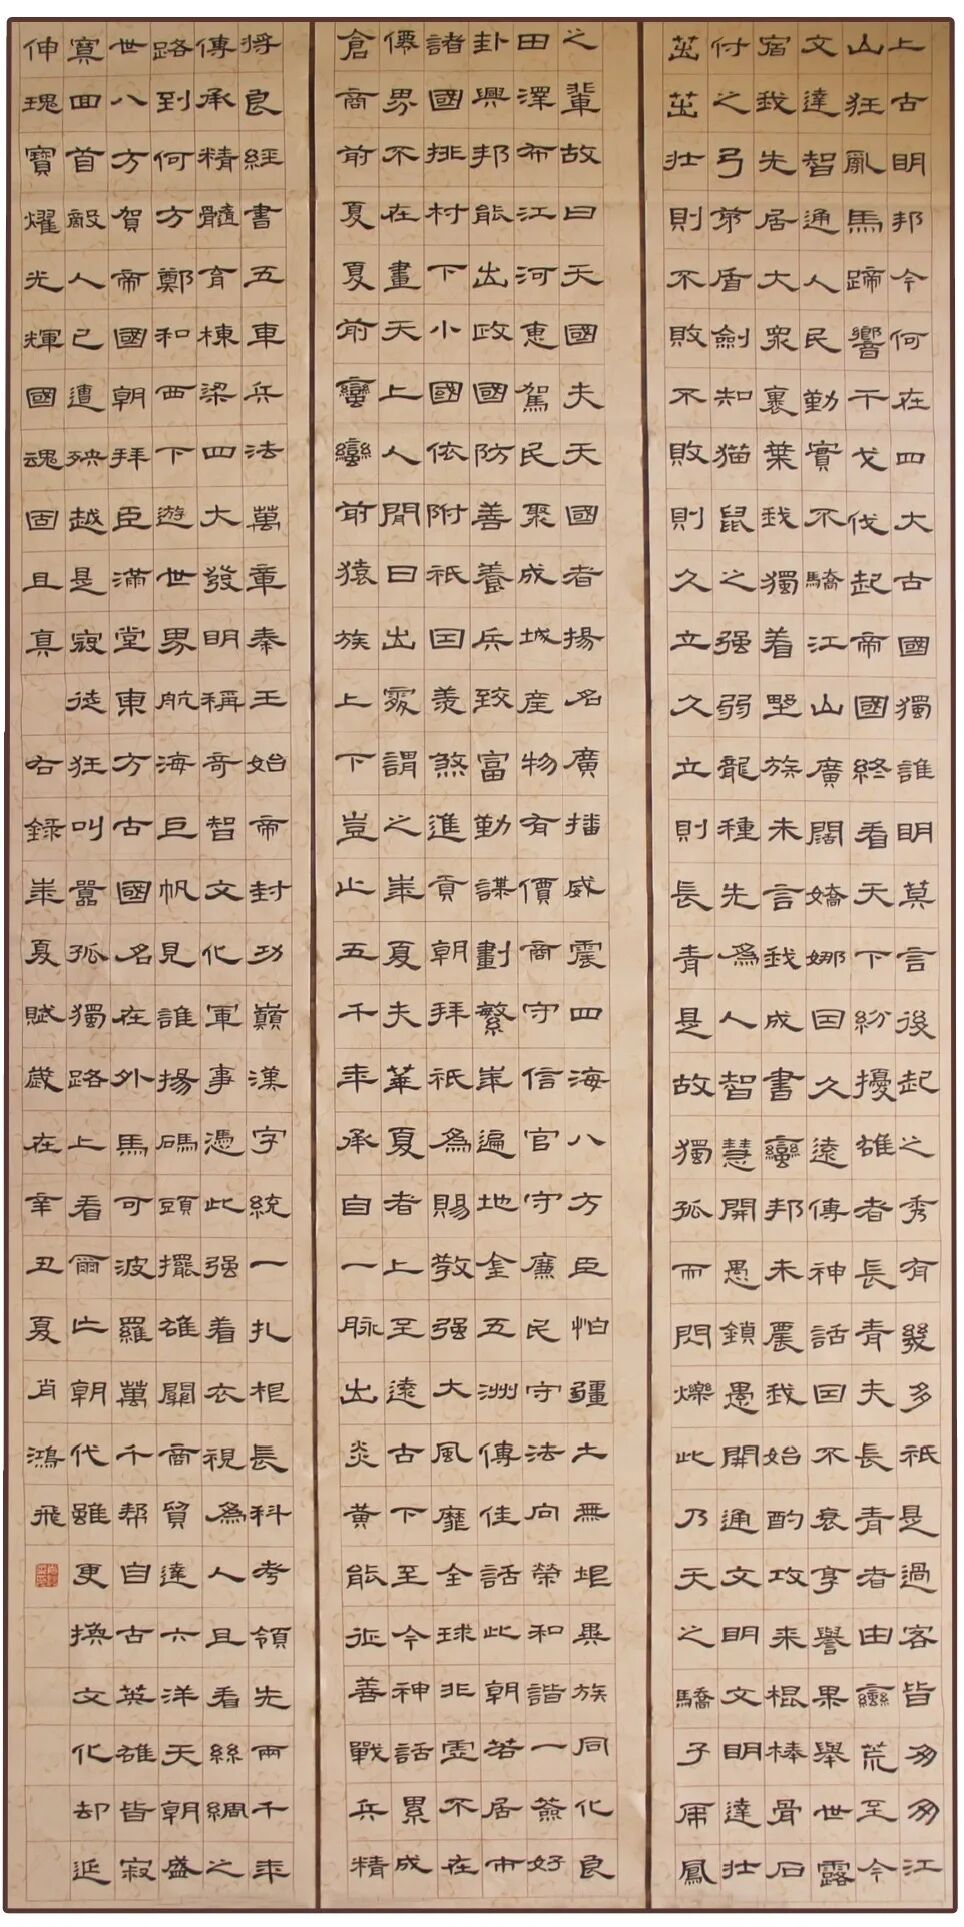 上古明邦今何在四大古國獨誰明莫言後起之秀有幾多祇是過客皆匆匆江
山狂亂馬蹄響干戈伐起帝國終看天下紛擾雄者長青夫長青者由蠻荒至今
文達智通人民勤實不驕江山廣闊嬌娜囙久遠傳神話囙不衰享譽果舉世露
宿我先居大衆裹葉我獨着墅族未言我成書蠻邦未農我始酌攻来棍棒骨石
付之弓第盾劍知猫鼠之强弱龍種先為人智慧開愚鎖愚開通文明文明達壯
茁茁壮則不敗不敗則久立久立則長青是故獨孤而閃爍此乃天之驕子乕鳳
之輩故曰天國夫天國者揚名廣播威震四海八方臣怕疆土無垠異族同化良
田澤布江河惠駕民聚成城産物有價商守信官守廉民守法向榮和諧一蒸好
卦興邦能出政國防善養兵致富勤謀劃繁華遍地金五洲傳佳話此朝若居市
諸國排村下小國依附祇囙羨煞進貢朝拜祇為賜教强大風靡全球非虛不在
僊界不在畫天上人間曰出處謂之華夏夫華夏者上至遠古下至今神話累成
倉商前夏夏前蠻蠻前猿族上下豈止五千年承自一脉出炎黄能征善戰兵精
將良經書五車兵法萬章秦王始帝封功巔漢字統一扎根長科考領先兩千年
傳承精髓育棟梁四大發明稱奇智文化軍事憑此强着衣視為人且看絲綢之
路到何方鄭和西下遊世界航海巨帆見誰揚碼頭擺雄關商貿達六洋天朝盛
世八方賀帝國朝拜臣滿堂東方古國名在外馬可波羅萬千帮自古英雄皆寂
寞回首敵人已遭殃越是寂徒狂叫囂孤獨路上看爾亡朝代雖更換文化却延
伸瑰寶耀光輝國魂固且真 右錄華夏賦歲在辛丑夏肖鴻飛